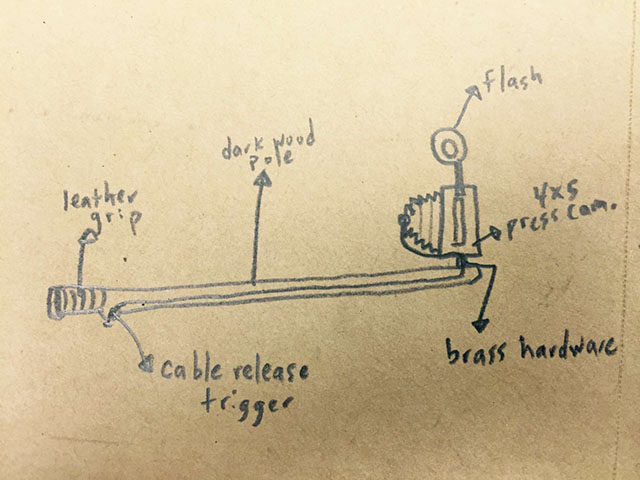 flash
dark wood
pole
leather
grip
4x5
press cam.
brass hardware
cable release
trigger